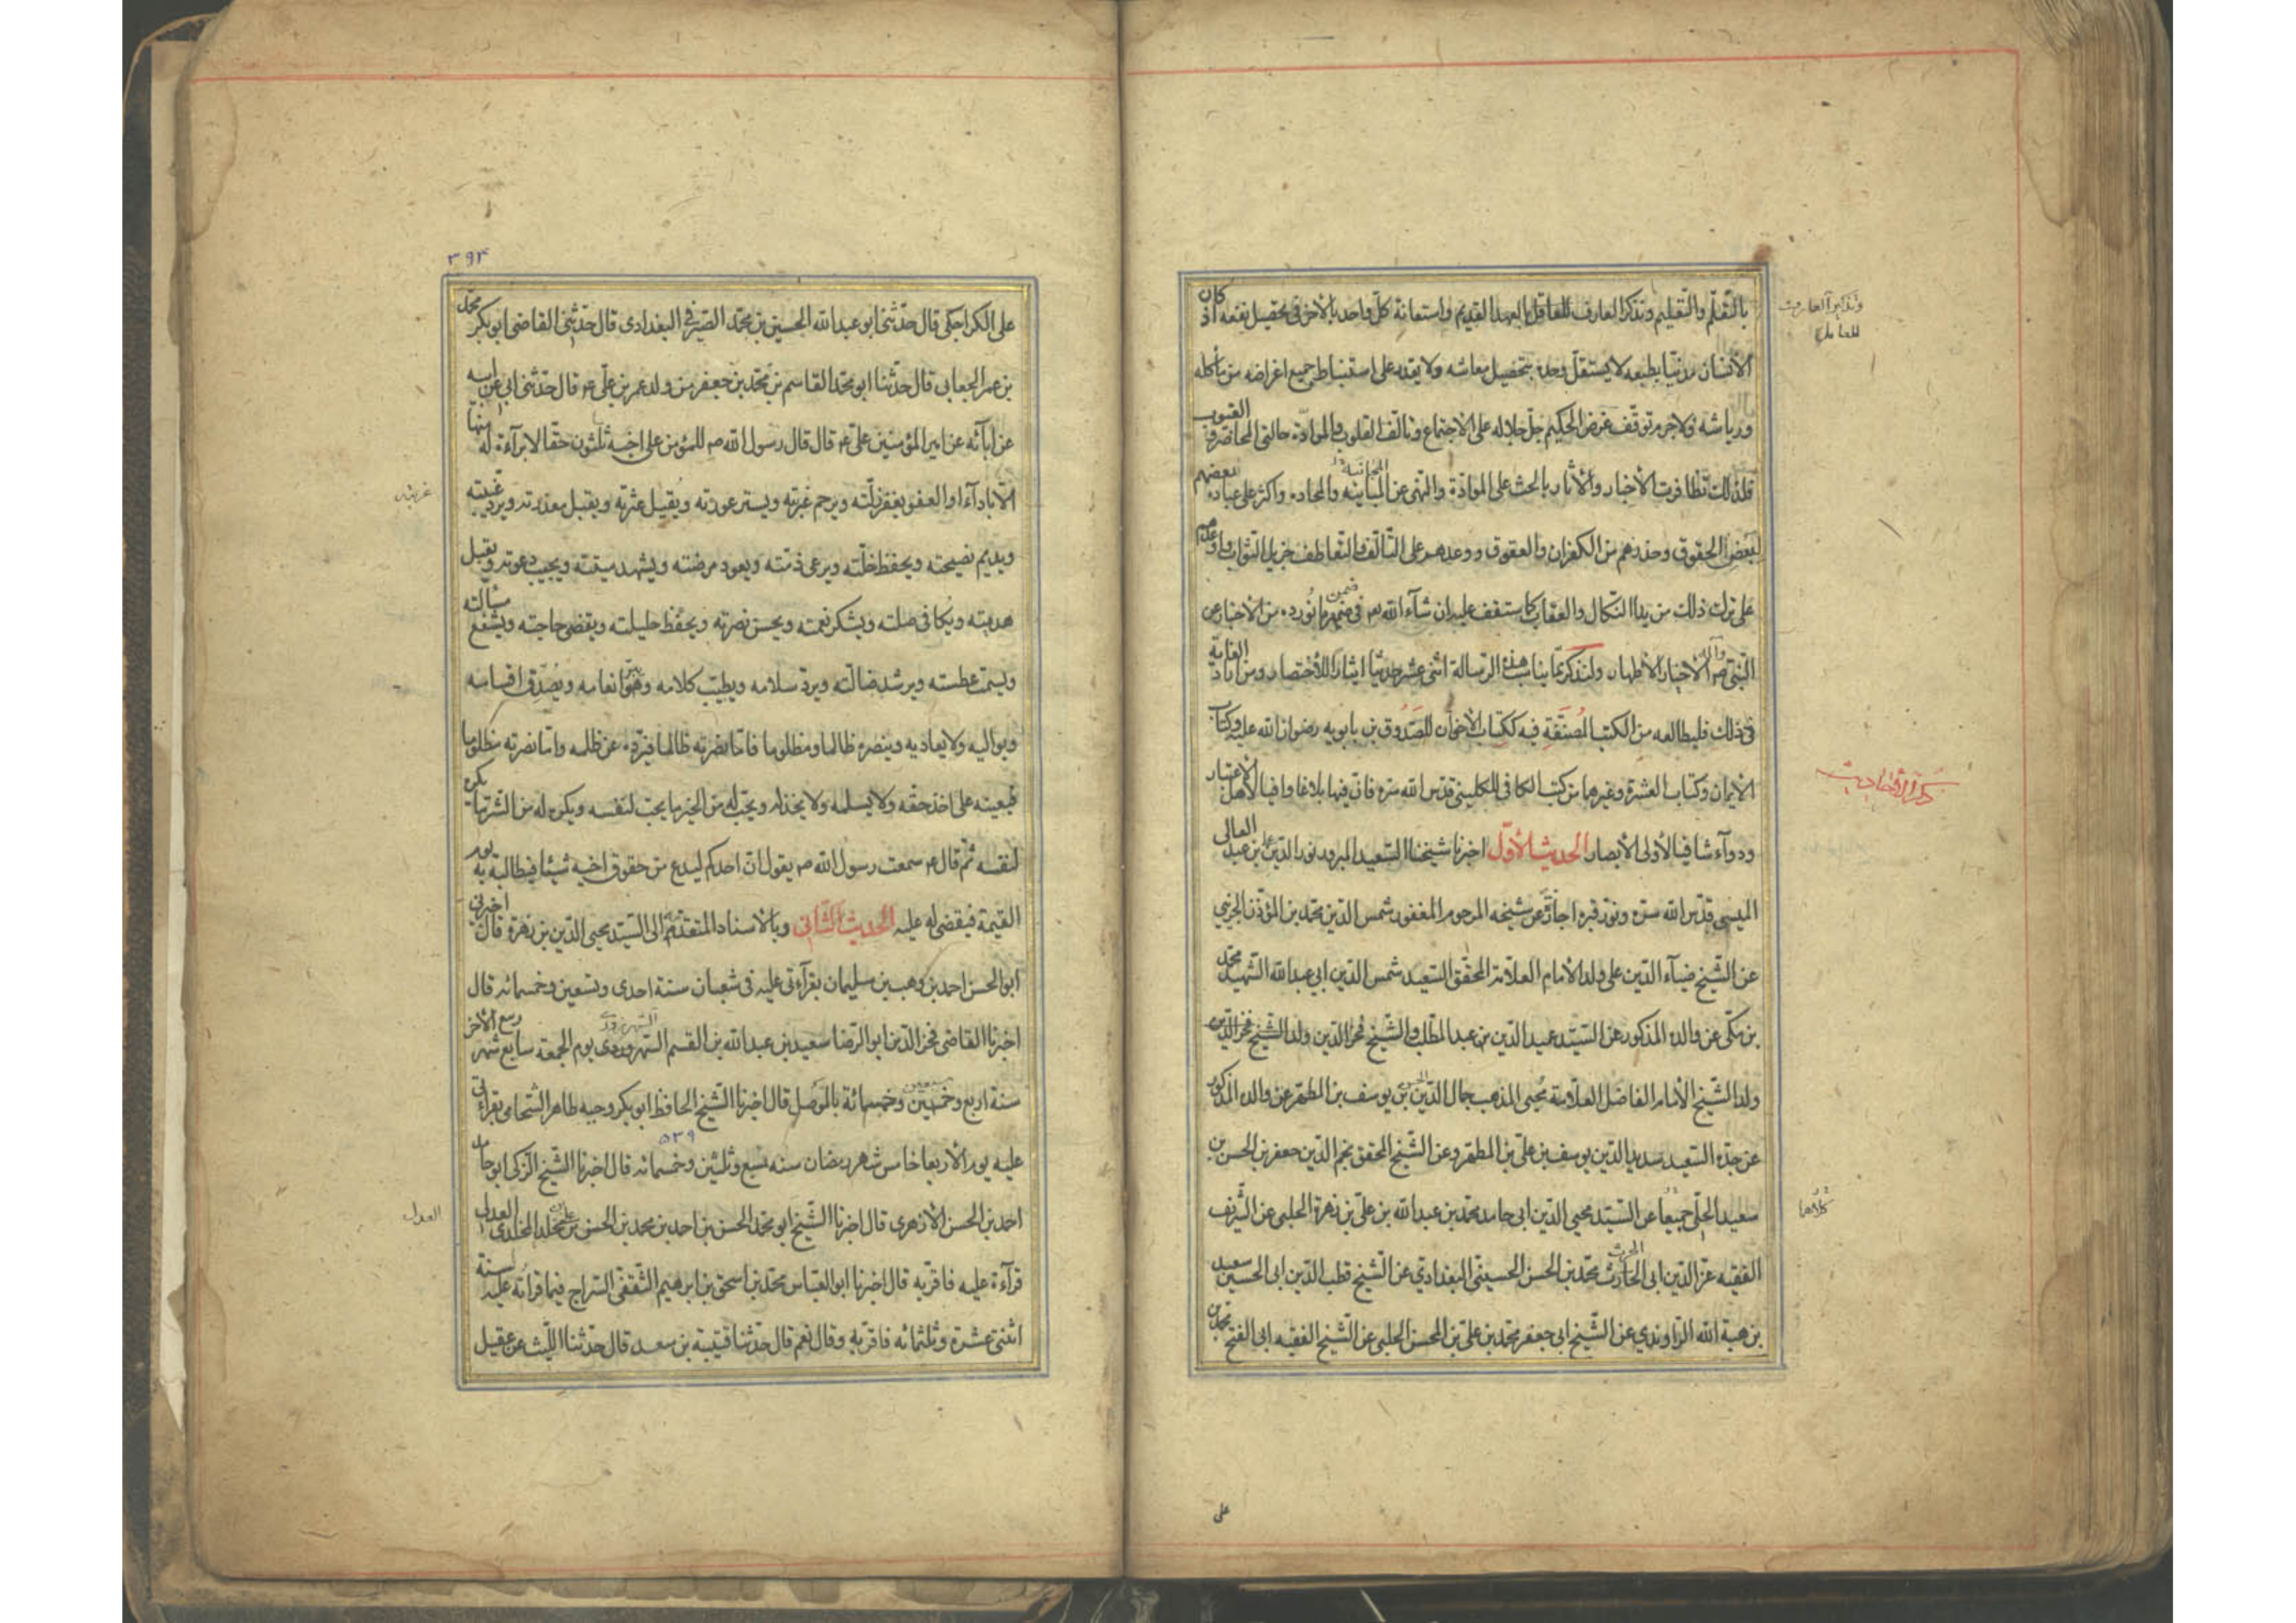 بالتّعلّم والتّعليم وتذكّر العارف للغافل بالعهد القديم واستعانة كلّ واحد بالآخر فى تحصيل نفعه اذ كان
وتذكير العارف
للغافل
الأنسان مدنيّا بطبعه لا يستقلّ وحده بتحصيل معاشه ولا يقدر على استنباط جميع اغراضه من مأكله
ورياشه ولاجرم توقّف غرض الحكيم جلّ جلاله على الاجتماع وتألّف القلوب والموادّة حالتى المحاضرة
فلذلك تظافرت الأخبار والآثار بالحث على الموادّة والنهى عن المباينة والمحاده واكثر على عباده بعضهم
لبعض الحقوق وحذرهم من الكفران والعقوق ووعدهم على التّألّف والتّعاطف جزيل الثواب
على ترك ذلك من يد النّكال والعقاب كما ستقف عليه ان شآء الله تع فى ضمن ما نورده من الأخبار عن
النّبى ص وآله الأخيار الأطهار ولنذكر ممّا يناسب هذه الرسالة اثنى عشر حديثا ايثارا للأختصار ومن اراد الغاية
فى ذلك فليطالعه من الكتب المصنّفة فيه ككتاب الأخوان للصّدوق بن بابويه رضوان الله عليه وكتاب
الأيمان وكتاب العشرة وغيرها من كتب الكافى للكلينى قدّس الله سرّه فانّ فيها بلاغا وافيا لأهل الأعتبار
ودوآء شافيا لأولى الأبصار الحديث الأوّل اخبرنا شيخنا السّعيد المبرور نور الدّين على بن عبد العالى
الميسى قدّس الله سرّه ونوّر قبره اجازة عن شيخه المرحوم المغفور شمس الدّين محمّد بن المؤذّن الجزينى
عن الشّيخ ضيآء الدّين على ولد الأمام العلّامة المحقّق السّعيد شمس الدّين ابى عبد الله الشّهيد محمّد
بن مكّى عن والده المذكور عن السّيّد عميد الدّين بن عبد المطّلب والشّيخ فخر الدّين ولد الشّيخ فخر الدّين
ولد الشّيخ الأمام الفاضل العلّامة محيى المذهب جمال الدّين الحسن بن يوسف بن المطهّر عن والده المذكور
عن جدّه السّعيد سديد الدّين يوسف بن علىّ بن المطهّر وعن الشّيخ المحقق نجم الدّين جعفر بن الحسن بن
سعيد الحلّى جميعا عن السّيّد محيى الدّين ابى حامد محمّد بن عبد الله بن علىّ بن زهرة الحلبى عن الشّريف
كلاهما
الفقيه عزّ الدّين ابى الحارث محمّد بن الحسن الحسينى البغدادى عن الشّيخ قطب الدّين ابى الحسين سعيد
بن هبة الله الرّاوندى عن الشّيخ ابى جعفر محمّد بن علىّ بن المحسن الحلبى عن الشّيخ الفقيه ابى الفتح محمّد بن
على
٣٩٣
على الكراجكى قال حدّثنى ابو عبد الله الحسين بن محمّد الصّيرفى البغدادى قال حدّثنى القاضى ابو بكر محمّد
بن عمر الجعابى قال حدّثنا ابو محمّد القاسم بن محمّد بن جعفر من ولد عمر بن علىّ ع قال حدّثنى ابى عن ابيه
عن ابآئه عن امير المؤمنين علىّ ع قال قال رسول الله ص للمؤمن على اخيه ثلثون حقّا لا برآءة له منها
الّا بادآء او العفو يغفر زلّته ويرحم عبرته ويستر عورته ويقيل عثرته ويقبل معذرته ويردّ غيبته
ويديم نصيحته ويحفظ خلّته ويرعى ذمّته ويعود مرضته ويشهد ميتته ويجيب دعوته ويقبل
هديته ويكافى صلته ويشكر نعمته ويحسن نصرته ويحفظ حليلته ويقضى حاجته ويشفع مسألته
ويسمت عطسته ويرشد ضالّته ويردّ سلامه ويطيّب كلامه انعامه ويصدّق اقسامه
ويواليه ولا يعاديه وينصره ظالما ومظلوما فامّا نصرته ظالما فيردّه عن ظلمه وامّا نصرته مظلوما
فيعينه على اخذ حقّه ولا يسلمه ولا يخذله ويحبّ له من الخير ما يحبّ لنفسه ويكره له من الشّر ما يكره
لنفسه ثم قال ع سمعت رسول الله ص يقول انّ احدكم ليدع من حقوق اخيه شيئا فيطالبه به يوم
القيمة فيقضى له عليه الحديث الثّانى وبالأسناد المتقدّم الى السّيّد محيى الدّين بن زهرة قال اخبرنى
ابو الحسن احمد بن وهب بن سليمان بقرآءتى عليه فى شعبان سنة احدى وتسعين وخمسمائه قال
اخبرنا القاضى فخر الدّين ابو الرّضا سعيد بن عبد الله بن القسم السّهروردى يوم الجمعة سابع شهر ربيع الآخر
سنة اربع وخمسين وخمسمائة بالموصل قال اخبرنا الشّيخ الحافظ ابو بكر وجيه طاهر الشّحامى بقرآءتى
٥٣٩
عليه يوم الأربعا خامس شهر رمضان سنه تسع وثلثين وخمسمائه قال اخبرنا الشّيخ الزّكى ابو حامد
احمد بن الحسن الأزهرى قال اخبرنا الشّيخ ابو محمّد الحسن بن احمد بن محمد بن الحسن بن على بن مخلد المخلدى العدل
العدل
قرآءة عليه فاقرّ به قال اخبرنا ابو العبّاس محمّد بن اسحق بن ابرهيم الثّقفى السّراج فيما قرأته عليه سنة
اثنتى عشرة وثلثمائه فاقرّ به وقال نعم قال حدّثنا قتيبة بن سعد قال حدّثنا اللّيث عن عقيل